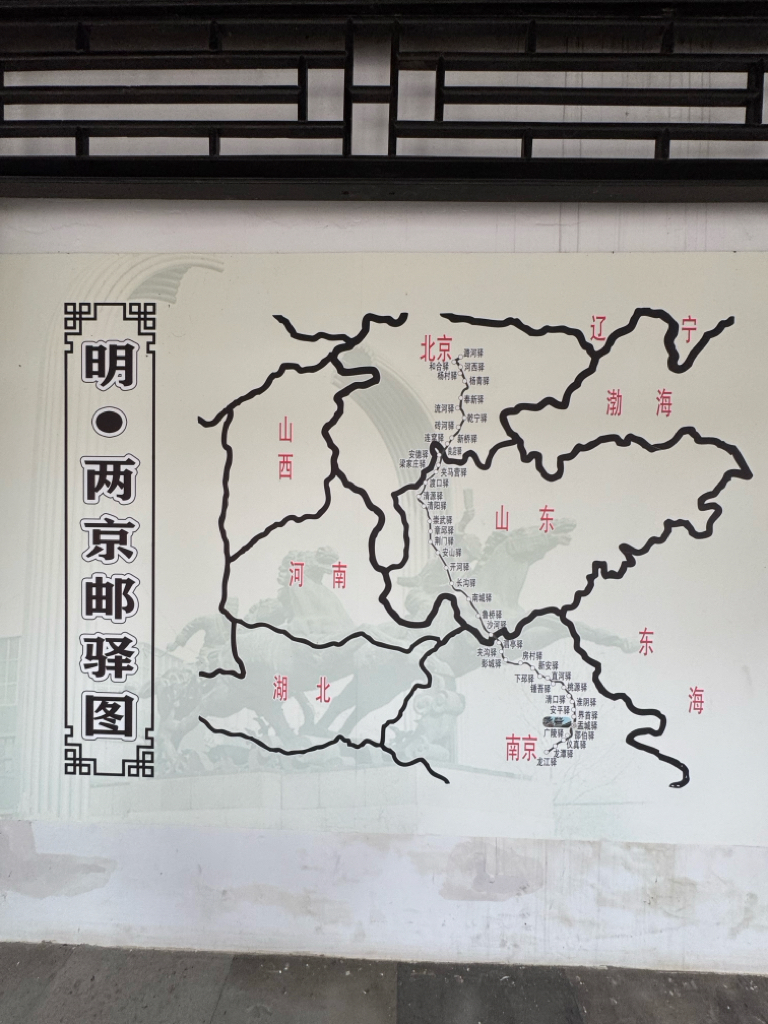 明·两京邮驿图
辽 宁
北京
潞河驿
和合驿
河西驿
杨村驿
杨青驿
渤 海
奉新驿
流河驿
乾宁驿
砖河驿
山西
连窝驿
新桥驿
良店驿
安德驿
梁家庄驿
夹马营驿
渡口驿
清源驿
清阳驿
山 东
崇武驿
荆门驿
安山驿
开河驿
河 南
长沟驿
南城驿
鲁桥驿
沙河驿
泗亭驿
夹沟驿
东 海
房村驿
彭城驿
新安驿
下邳驿
直河驿
钟吾驿
桃源驿
湖 北
清口驿
淮阴驿
安平驿
界首驿
盂城驿
广陵驿
邵伯驿
南京
仪真驿
龙潭驿
龙江驿